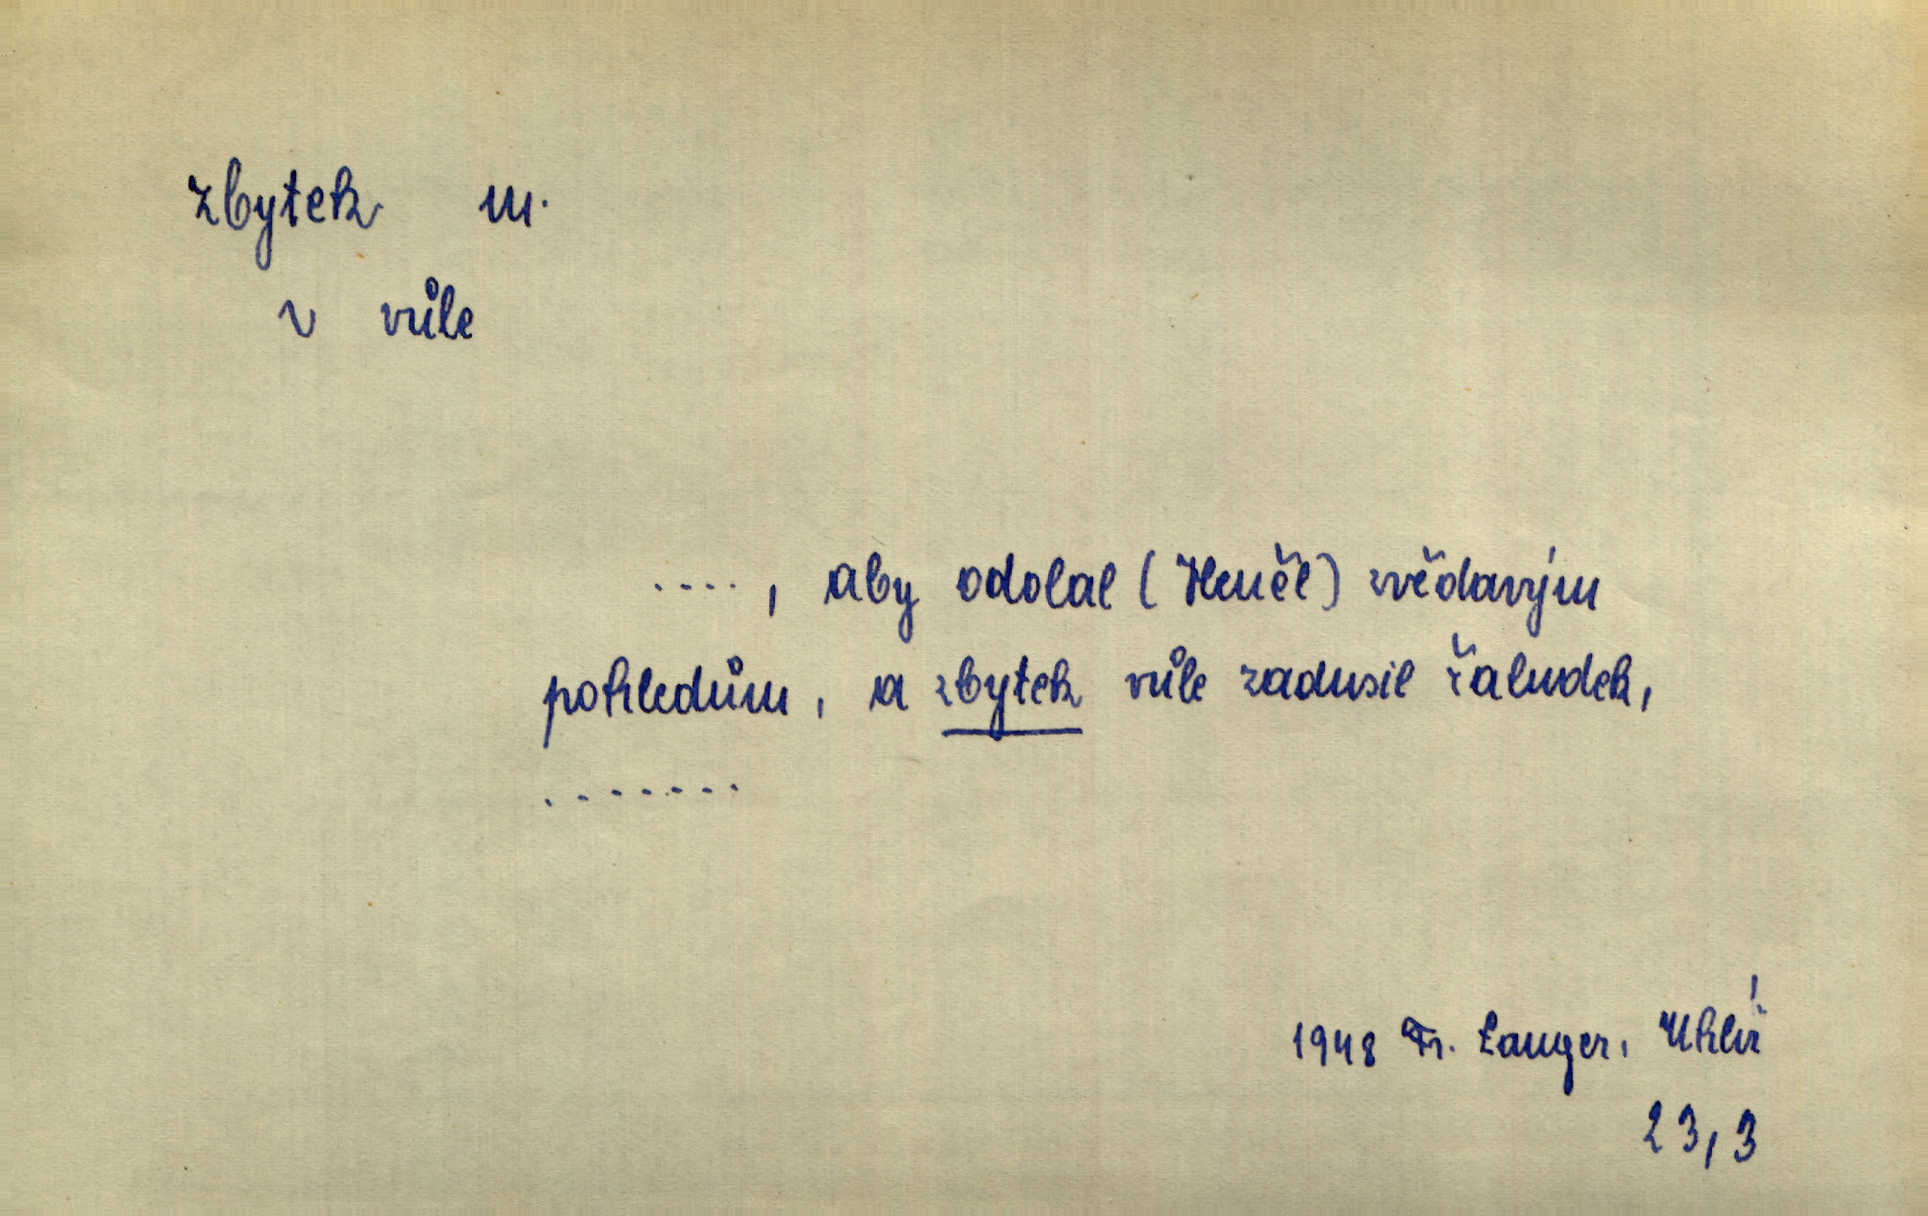 zbytek m.
v vůle
...., aby odolal (Henčl) zvědavým
pohledům, a zbytek vůle zadusil žaludek,
.......
1948 Fr. Langer, Uhlíř
23,3